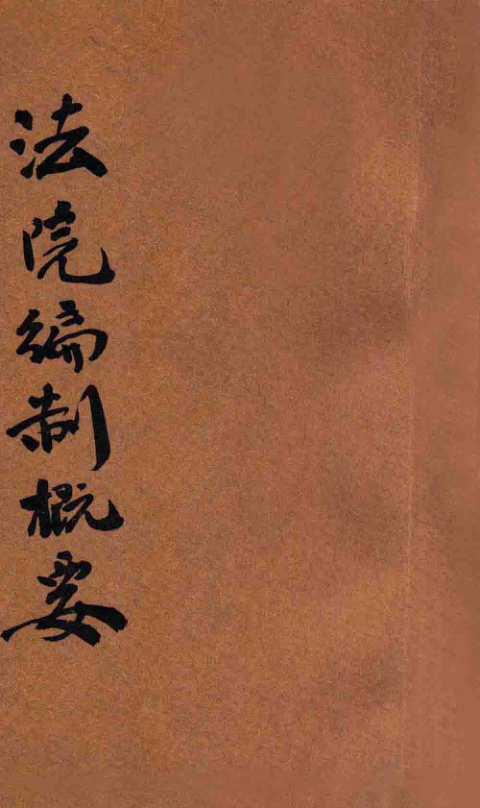 法院编制概要